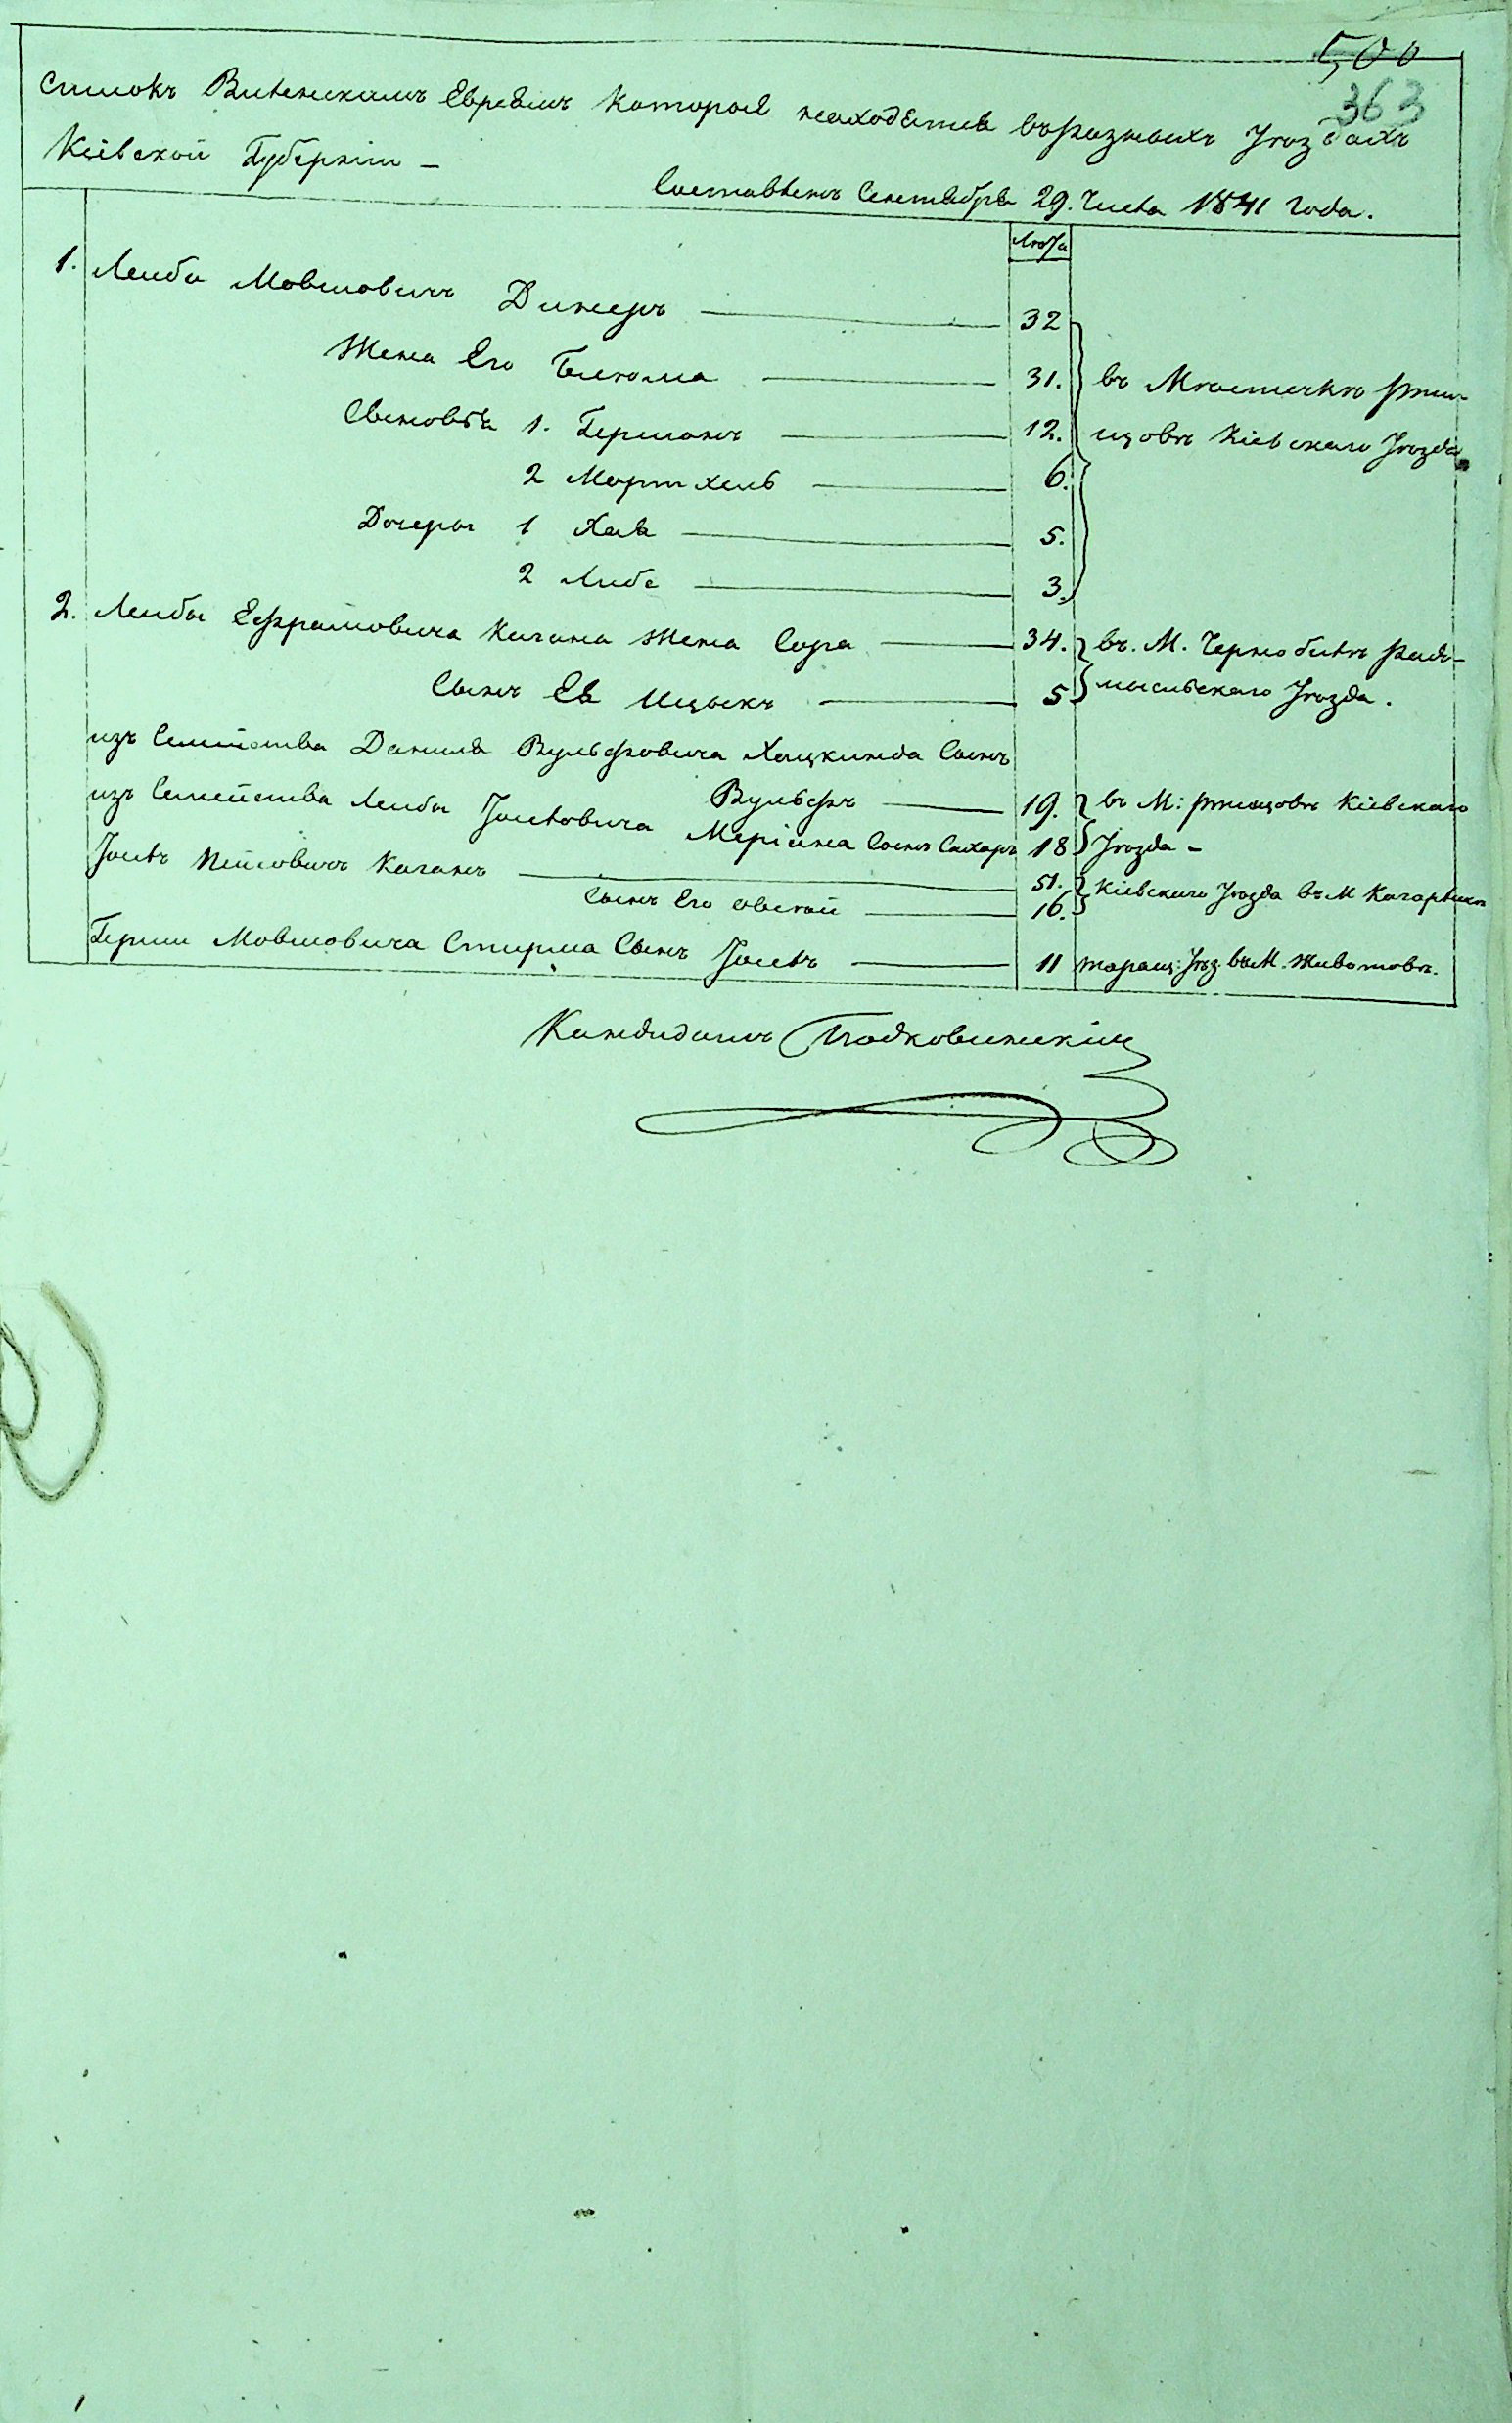 500
363
Списокъ Виленскимъ Евреямъ которыя находятся въ разныхъ Уѣздахъ
Кіевской Губерніи –
Составленъ Сентября 29. Числа 1841 Года.
Лѣта
1. Лейба Мовшовичъ Динеръ 32
Жена Его 31. въ Мѣстечкѣ Ржи-
Сыновья 1. Гершонъ 12. щовѣ Кіевскаго Уѣзда
2 Мортхель 6.
Дочеры 1 Хая 5.
2 Либе 3.
2. Лейбы Ефраимовича Кагана Жена Сора 34. въ. М. Чернобилѣ Радо-
Сынъ Ея Ицыкъ 5 мысльскаго Уѣзда.
изъ Семейства Даниля Вульфовича Хацкинда Сынъ
Вульфъ 19. въ М: Ржищовѣ Кіевскаго
изъ Семейства Лейбы Іоселовича Меріина Сынъ Сахаръ 18 Уѣзда –
Іосель Пейсовичъ Каганъ 51. Кіевскаго Уѣзда въ М Кагарлыкѣ
Сынъ Его 16.
Герши Мовшовича Стирма Сынъ Іосель 11 Таращ: Уѣз. въ М. Животовѣ.
Кандидатъ